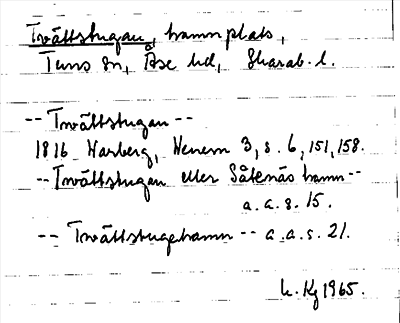 Tvättstugan, hamnplats,
Tuns sn, Åse hd, Skarab. l.
-- Tvättstugan --
1816 Warberg, Wenern 3, s. 6, 151, 158.
-- Tvättstugan eller Såtenäs hamn --
a. a. s. 15.
-- Tvättstugehamn -- a. a. s. 21.
1965.